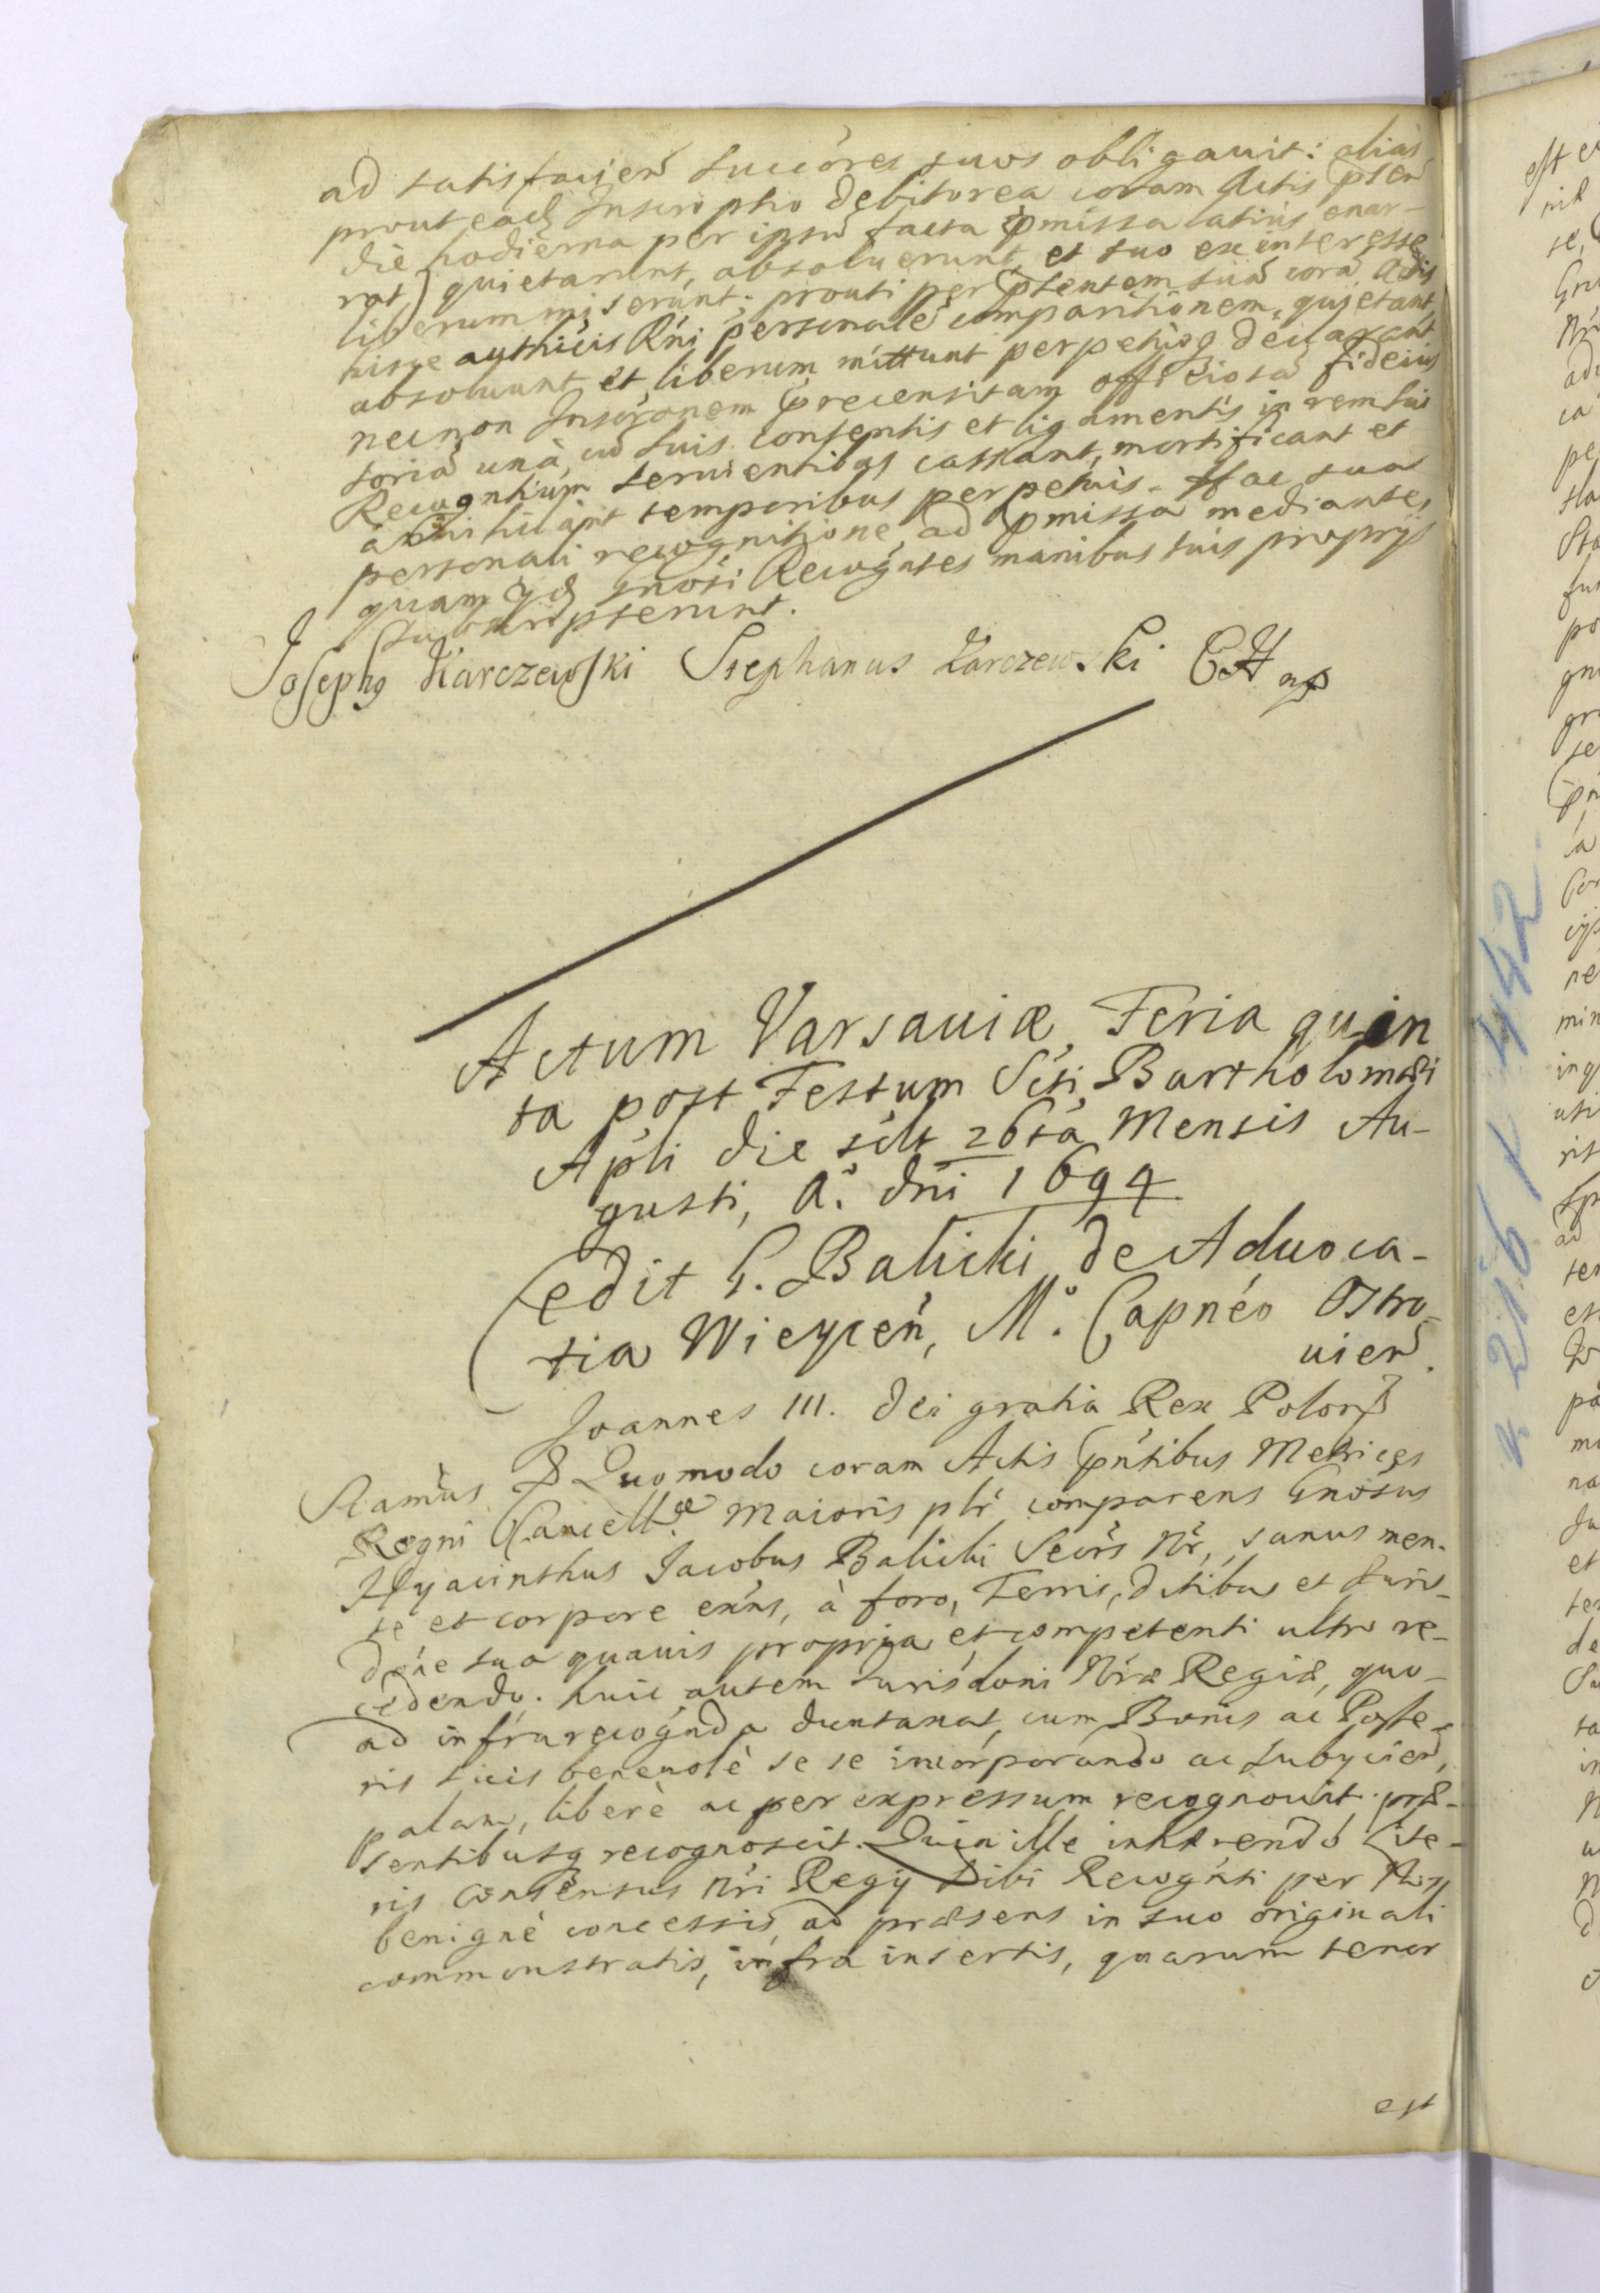 ad satisfacien̄ Succōres suos obligauit: alias
prout eadē Inscriptio debitorea coram Actis p̄sen̄
die hodierna per ipsū facta p̄missa latius enar-
rat) quietarunt, absoluerunt et suo ex interesse
liberum miserunt; prouti per p̄sentem suā corā Actis
hisce authĉis Rn̄i personalē comparitionem, quietant,
absoluunt, et liberum mittunt perpetuoq declarant,
necnon Inscr̄onem p̄recensitam officiosā fideius
soriā unà, cū suis contentis et ligamentis in rem suā
Recogn̄tium seruientibus cassant, mortificant et
annihilant temporibus perpetuis. Hac sua
personali recognitione, ad p̄missa mediante,
quam ijdē Gnōsi Recogn̄tes manibus suis proprijs
subscripserunt.
Josephg Karczewski Stephanus Karczewski CH mp
Actum Varsauiæ, Feria quin
ta post Festum Scti Bartholomæi
Ap̄li die sc̄lt 26ta Mensis Au-
gusti, A: dn̄i 1694
Cedit G. Balicki de Aduoca-
tia Wieycen̄, M: Capnéo Ostro-
uien.
Joannes III. dei gratia Rex Polon̄
Stamūs Quomodo coram Actis p̄n̄tibus Metrices
Regni Cancell̄æ Maioris pl̄r comparens Gnōsus
Hyacinthus Jacobus Balicki Secr̄s Nr̄, sanus men-
te et corpore exn̄s, à foro, Terris, dĉtibus et Juris-
dĉie sua quauis propria et competenti ultro re-
cedendo. huic autem Jurisdoni Nr̄æ Regiæ, quo-
ad infrarecogn̄da duntaxat, cum Bonis ac Poste-
ris suis beneuolè se se incorporando ac subijcien̄,
palam, liberè ac per expressum recognouit præ-
sentibusq recognoscit. Quia ille inhærendo Lite-
ris Consensus Nr̄i Regij Sibi Recogn̄ti per Nos
benignè concessis, ad præsens in suo originali
commonstratis, infra insertis, quarum tenor
est